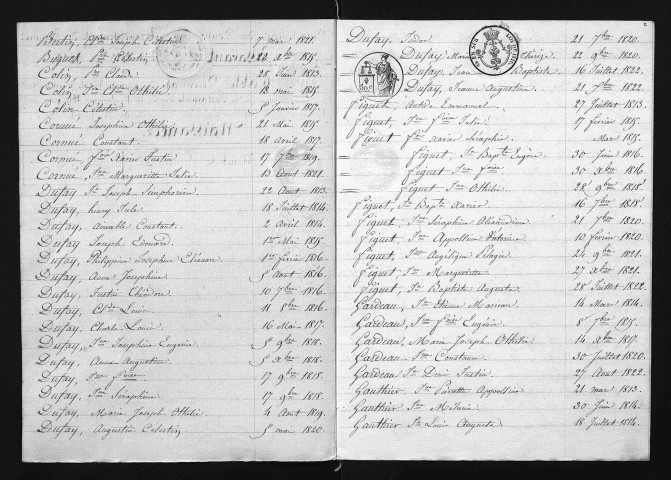 Bertin, Joseph Célestin 7 mai 1821.
Buquet, Célestin 20 Xbre 1815.
Colin, Jn Claude 28 Juin 1813.
Colin, Othilie 18 mai 1815.
Colin, Célestin 5 Janvier 1817.
Cornué Josephine Othilie 21 Mai 1815.
Cornué Constant 18 avril 1817.
Cornué fçois Xavier Justin 17 1819.
Cornué, Marguerite Julie 13 Aout 1821.
Dufay Jn Joseph Simphorien 22 Aout 1813.
Dufay, henry Jule 18 Juillet 1814.
Dufay, Aimable Constant 2 avril 1814.
Dufay Joseph Edouard 1er Mai 1815.
Dufay, Philippine Josephine Eléonore 1er février 1816.
Dufay, Anne Josephine 5 Aout 1816.
Dufay, Justin Théodore 10 7bre 1816.
Dufay, Cl.de Louis 11 8bre 1816.
Dufay, Charle Louis 16 Mai 1817.
Dufay, Josephine Eugénie 5 9bre 1818.
Dufay, Anne Augustine 5 Xbre 1818.
Dufay, 17 9bre 1818.
Dufay, Séraphine 17 9bre 1818.
Dufay, Marie Joseph Othilie 4 Aout 1819.
Dufay, Augustin Célestin 5 mai 1820.
2
Dufay, Isidor 21 7bre 1820.
Dufay 22 9bre 1820.
Dufay, Jean Baptiste 16 Juillet 1822.
Dufay, Jeanne Augustine 21 7bre 1822.
Figuet, Emmanuel 27 Juillet 1813.
Figuet, Julie 17 février 1815.
Figuet fçois Xavier Séraphin Mars 1815.
Figuet, Jn Bapte Eugène 30 Juin 1816.
Figuet, 30 Xbre 1816.
Figuet Othilie 28 9bre 1818
Figuet, Jn Bapte Xavier 16 7bre 1818
Figuet, Séraphine Alexandrine 21 7bre 1820.
Figuet, Appolline Victorine 10 février 1820.
Figuet, Angélique Pélagie 24 9bre 1821.
Figuet Marguerite 27 Xbre 1821.
Figuet Jn Baptiste Auguste 28 Juillet 1822.
Gardeau, Jn Etienne 14 Mars 1814.
Gardeau, Eugénie 8 7bre 1815.
Gardeau, Marie Joseph Othilie 14 Xbre 1817.
Gardeau Constance 30 Juillet 1820.
Gardeau Denis Justin 27 Aout 1822.
Gauthier Pierrette Appolline 21 mai 1813.
Gauthier Mélanie 30 Juin 1814.
Gauthier Louis Auguste 18 Juillet 1814.